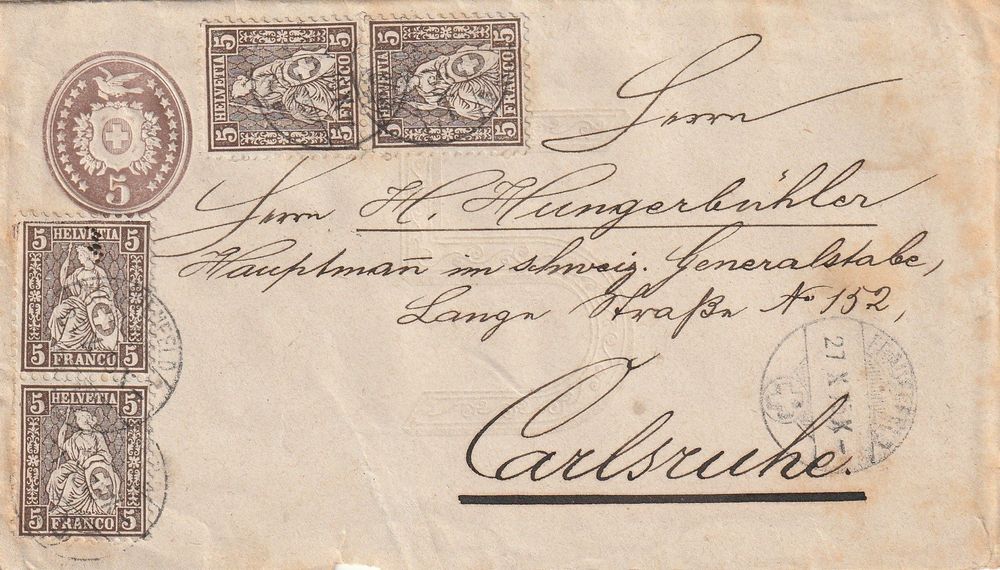 5 HELVETIA 5
5 FRANCO 5
5 HELVETIA 5
5 FRANCO 5
5
5 HELVETIA 5
5 FRANCO 5
5 HELVETIA 5
5 FRANCO 5
Herrn
Herrn H. Hungerbühler
Hauptman̄ im schweiz. Generalstabe,
Lange Straße No 152,
Carlsruhe.
27 X